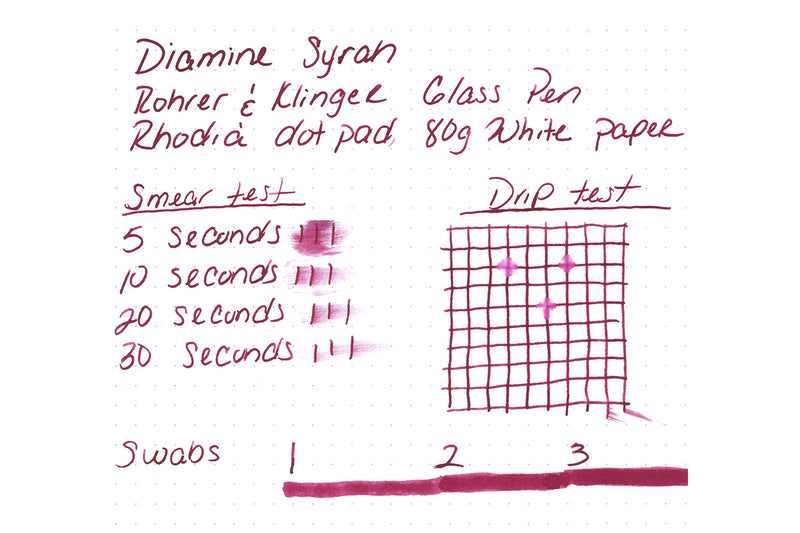 Diamine Syrah
Rohrer & Klinger Glass Pen
Rhodia dot pad, 80g White paper
Smear test
5 seconds
10 seconds
20 seconds
30 seconds
Drip test
Swabs 1 2 3